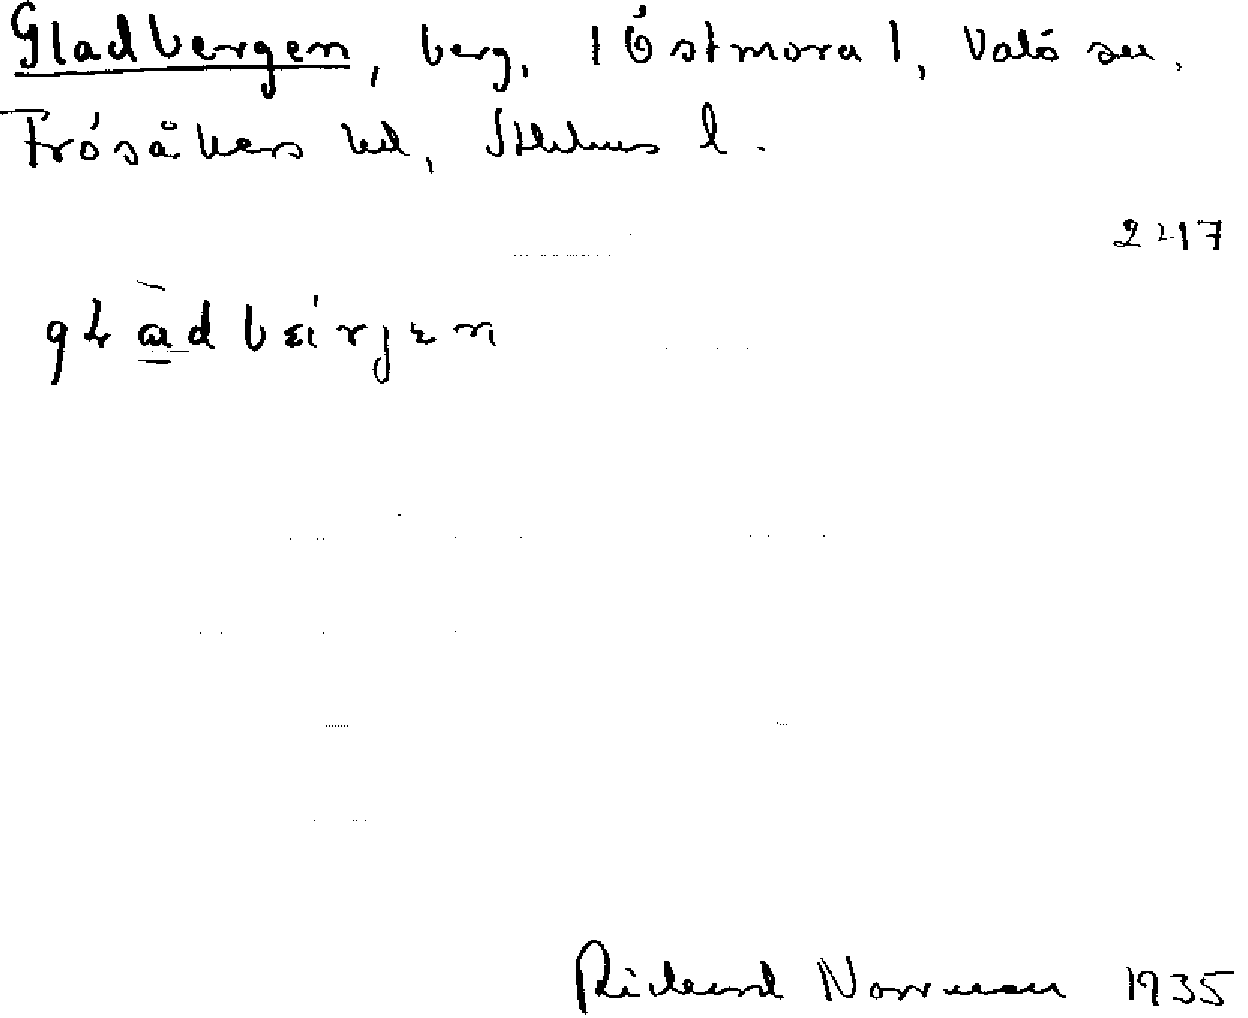 Gladbergen, berg, (Östmora), Valö sn.
Frösåkers hd, Sthlms l.
2217
Rickard Norrman 1935